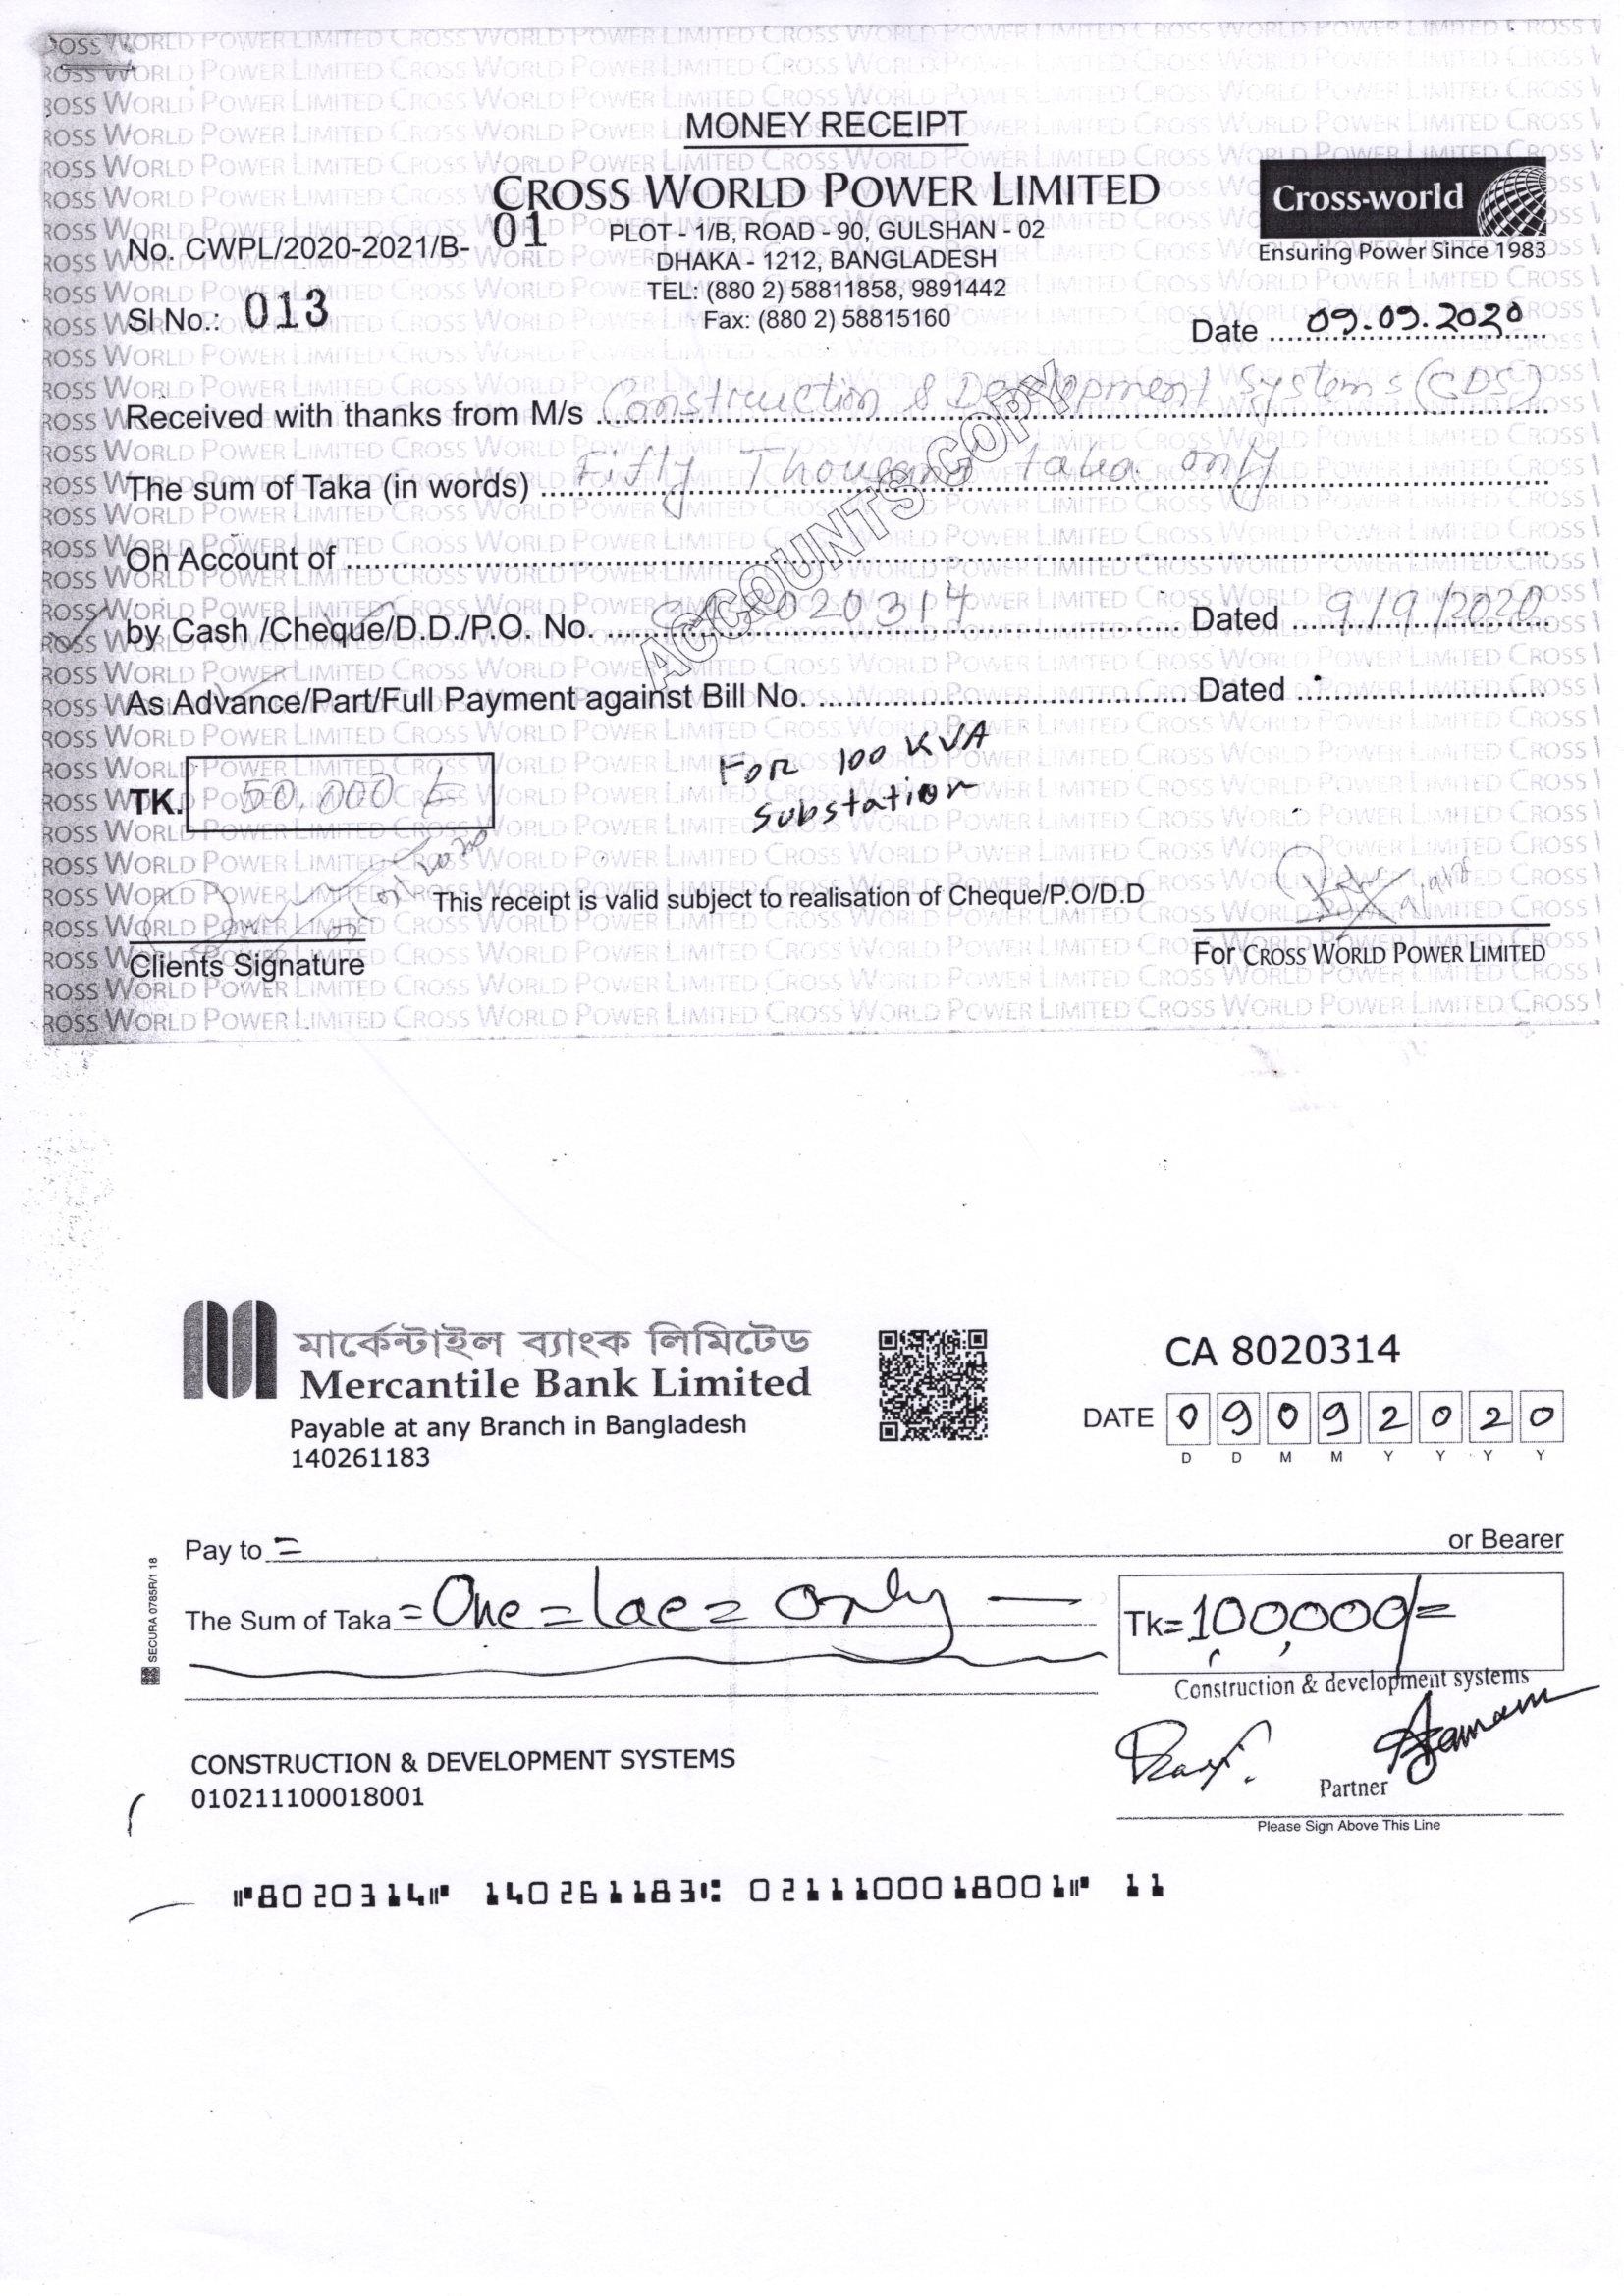 MONEY RECEIPT
CROSS WORLD POWER LIMITED
Cross-world
Ensuring Power Since 1983
No. CWPL/2020-2021/B- 01
PLOT - 1/B, ROAD - 90, GULSHAN - 02
DHAKA - 1212, BANGLADESH
TEL: (880 2) 58811858, 9891442
Fax: (880 2) 58815160
Sl No.: 013
Date 09.09.2020
Received with thanks from M/s Construction & Development Systems (CDS)
The sum of Taka (in words) Fifty Thousand taka only
On Account of
by Cash /Cheque/D.D./P.O. No. 8020314 Dated 9/9/2020
ACCOUNTS COPY
As Advance/Part/Full Payment against Bill No. Dated
FOR 100 KVA
Substation
TK. 50,000
This receipt is valid subject to realisation of Cheque/P.O/D.D
Clients Signature
For CROSS WORLD POWER LIMITED
মার্কেন্টাইল ব্যাংক লিমিটেড
Mercantile Bank Limited
Payable at any Branch in Bangladesh
140261183
CA 8020314
DATE 0 9 0 9 2 0 2 0
D D M M Y Y Y Y
Pay to = or Bearer
The Sum of Taka = One = lac = only —
Tk=100,000/=
SECURA 0785R/1 18
Construction & development systems
Partner
Please Sign Above This Line
CONSTRUCTION & DEVELOPMENT SYSTEMS
010211100018001
⑈8020314⑈ 140261183⑆ 0211100018001⑈ 11